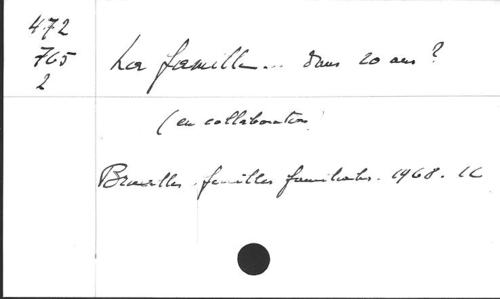 472
765
2
La famille... dans 20 ans ?
(en collaboration)
Bruxelles. familles familiales. 1968.